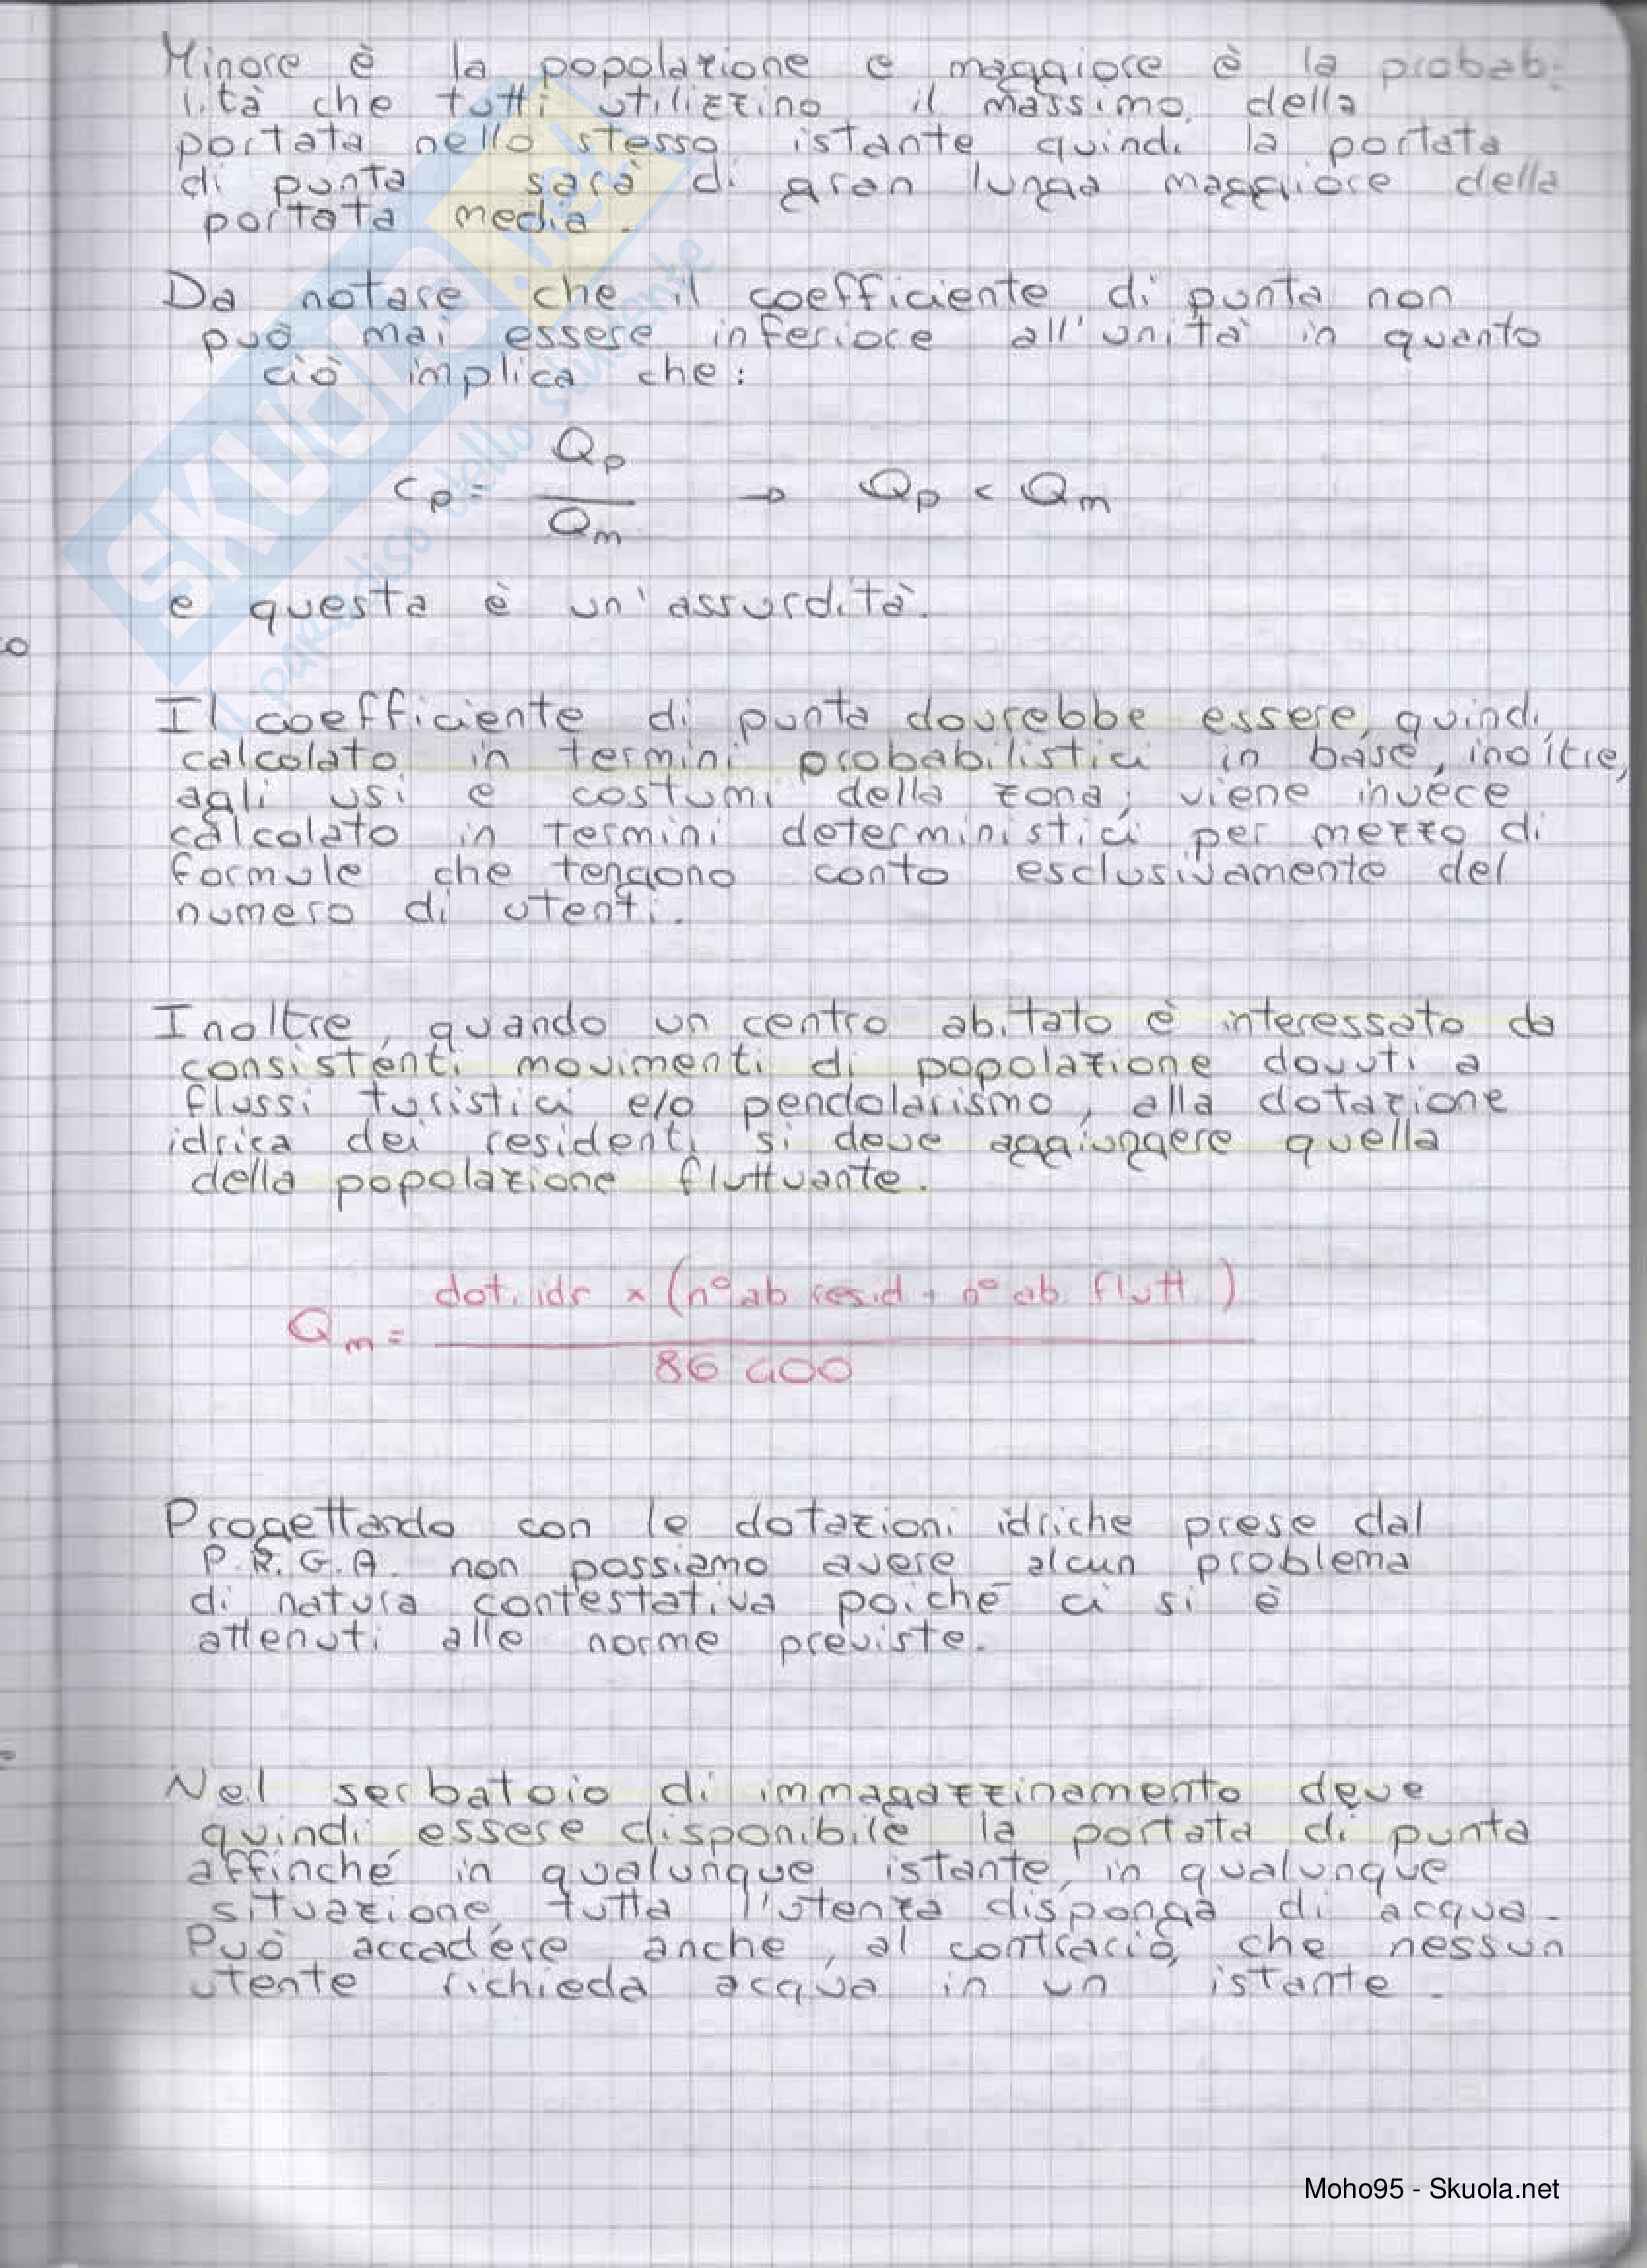 Minore è la popolazione e maggiore è la probabi
lità che tutti utilizzino il massimo della
portata nello stesso istante quindi la portata
di punta sarà di gran lunga maggiore della
portata media.
Da notare che il coefficiente di punta non
può mai essere inferiore all'unità in quanto
ciò implica che:
cp = Qp / Qm → Qp < Qm
e questa è un'assurdità.
Il coefficiente di punta dovrebbe essere, quindi,
calcolato in termini probabilistici in base, inoltre,
agli usi e costumi della zona; viene invece
calcolato in termini deterministici per mezzo di
formule che tengono conto esclusivamente del
numero di utenti.
Inoltre, quando un centro abitato è interessato da
consistenti movimenti di popolazione dovuti a
flussi turistici e/o pendolarismo, alla dotazione
idrica dei residenti si deve aggiungere quella
della popolazione fluttuante.
Qm = dot. idr × (n° ab resid + n° ab. flutt.) / 86 400
Progettando con le dotazioni idriche prese dal
P.R.G.A. non possiamo avere alcun problema
di natura contestativa poiché ci si è
attenuti alle norme previste.
Nel serbatoio di immagazzinamento deve
quindi essere disponibile la portata di punta
affinché in qualunque istante, in qualunque
situazione, tutta l'utenza disponga di acqua.
Può accadere anche, al contrario, che nessun
utente richieda acqua in un istante.
SKUOLA.net
il paradiso dello studente
Moho95 - Skuola.net